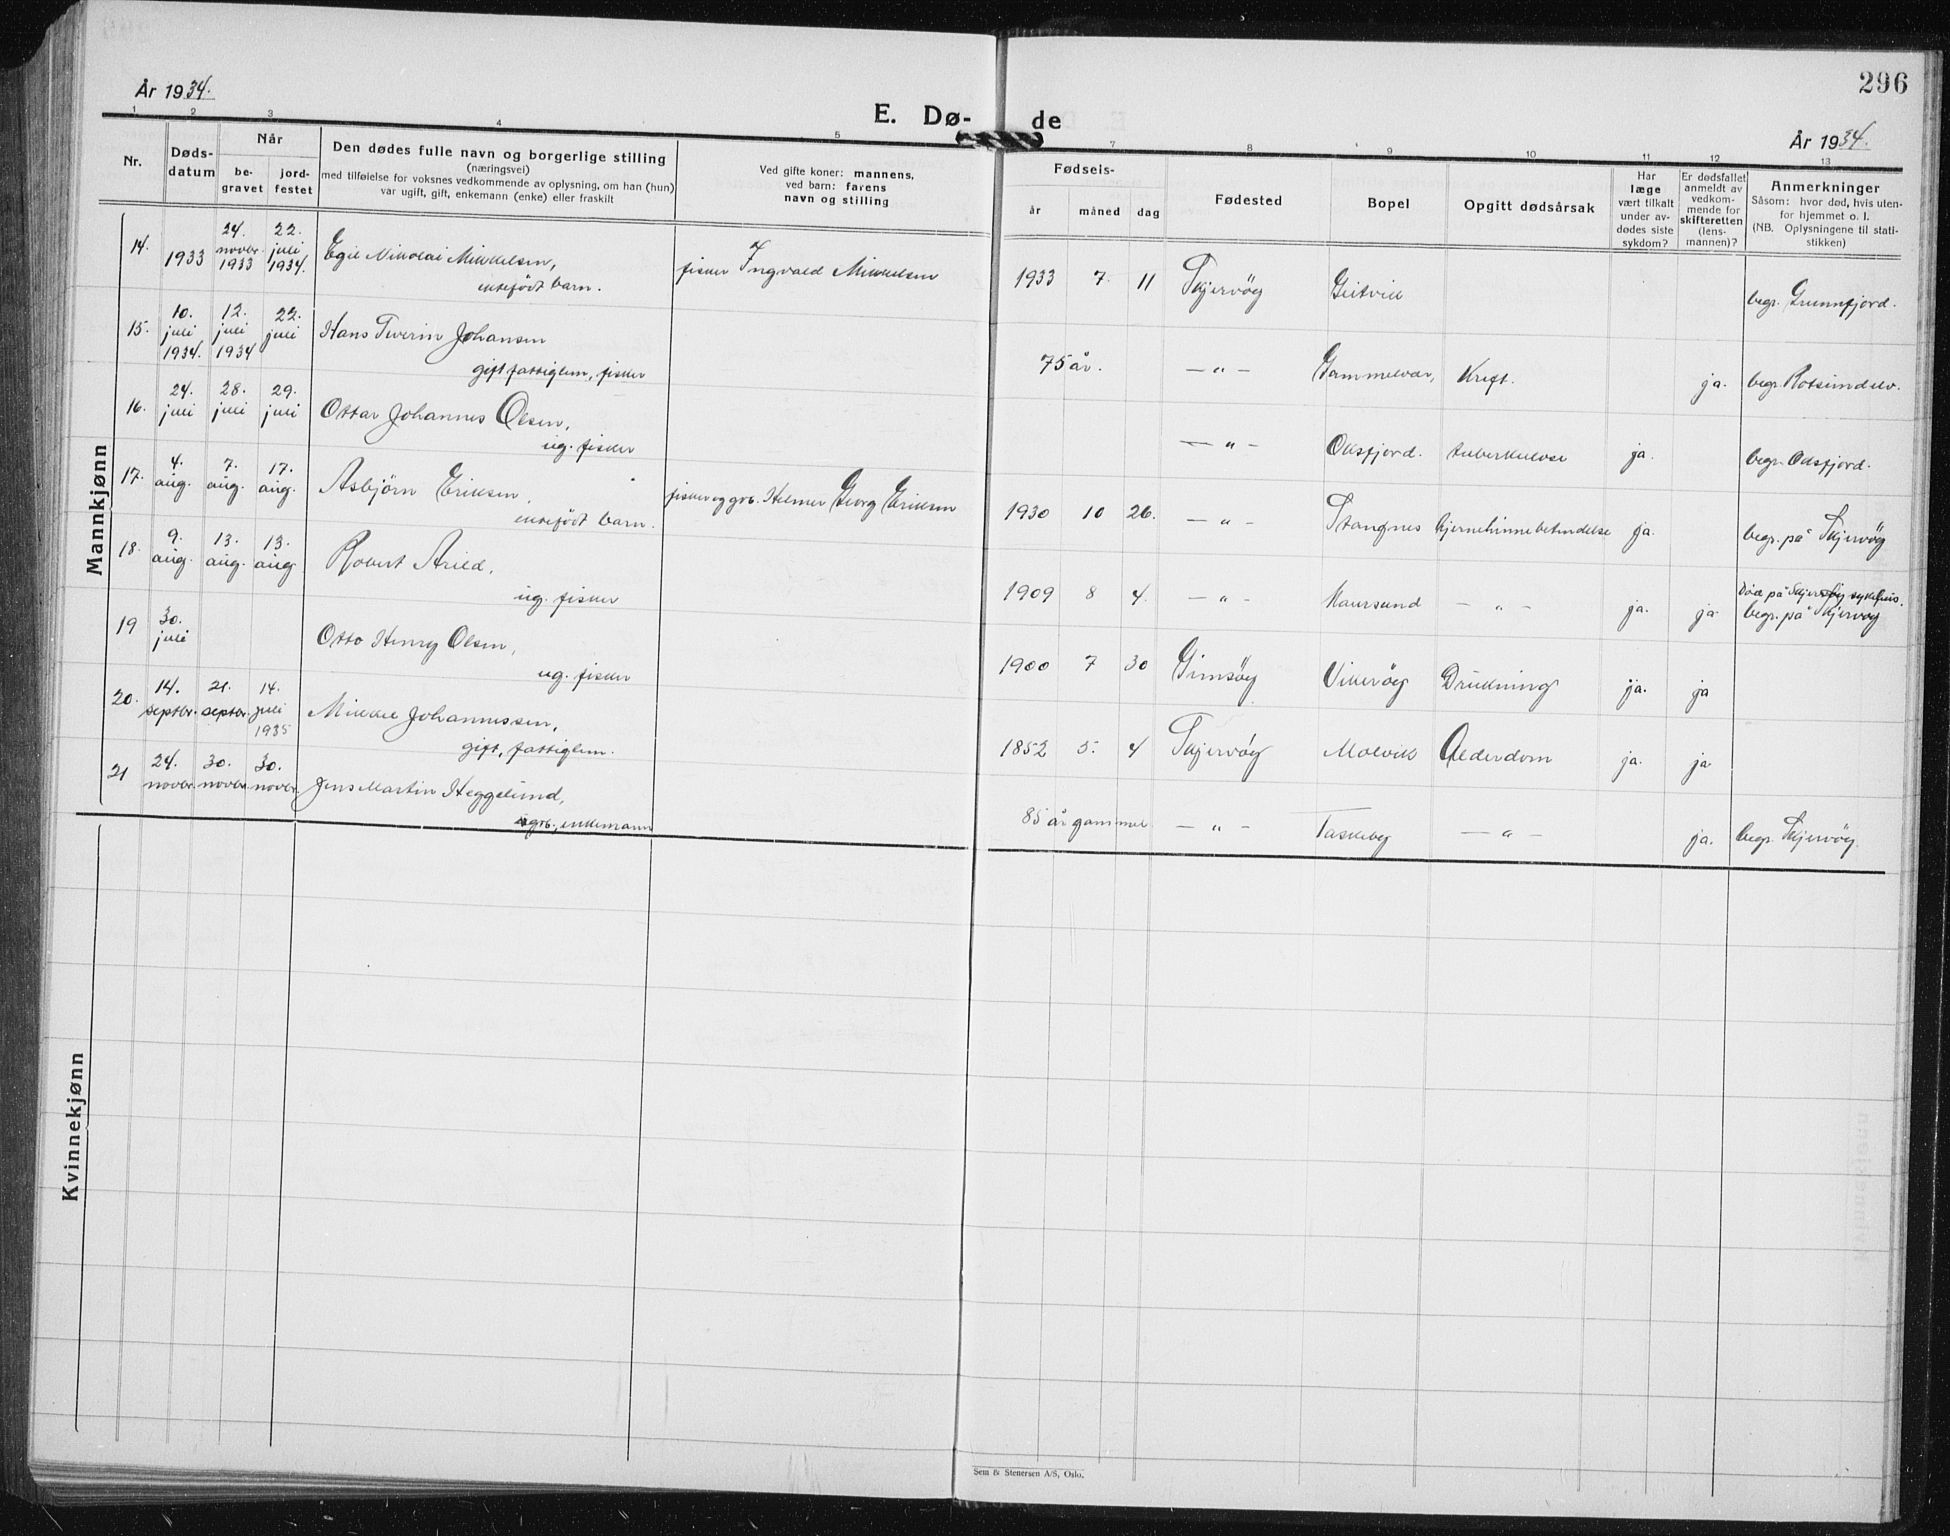 296
År 1934.
E. Dø-
de
År 1934.
1 2 3 4 5 7 8 9 10 11 12 13
Nr.
Døds-
datum
Når
be-
gravet
jord-
festet
Den dødes fulle navn og borgerlige stilling
(næringsvei)
med tilføielse for voksnes vedkommende av oplysning, om han (hun)
var ugift, gift, enkemann (enke) eller fraskilt
Ved gifte koner: mannens,
ved barn: farens
navn og stilling
Fødsels-
år måned dag
Fødested
Bopel
Opgitt dødsårsak
Har
læge
vært tilkalt
under av-
dødes siste
sykdom?
Er dødsfallet
anmeldt av
vedkom-
mende for
skifteretten
(lens-
mannen)?
Anmerkninger
Såsom: hvor død, hvis uten-
for hjemmet o. l.
(NB. Oplysningene til stati-
stikken)
Mannkjønn
14. 1933 24. novbr. 1933 22. juli 1934. Egil Nikolai Mikkelsen, fisker Ingvald Mikkelsen 1933 7. 11 Skjervöy Geitvik begr. Grunnfjord.
ektefödt barn.
15. 10. juli 1934. 12. juli 1934 22. juli Hans Severin Johansen 75 år. — „ — Gammelvær, Kreft. ja. begr. Rotsundelv.
gift fattiglem, fisker
16. 24. juli 28. juli 29. juli Ottar Johannes Olsen, — „ — Oksfjord. tuberkulose ja. begr. Oksfjord.
ug. fisker
17. 4. aug. 7. aug. 17. aug. Asbjörn Eriksen, fisker og grb. Helmer Georg Eriksen 1930 10 26. — „ — Stangnes hjernehinnebetendelse ja. begr. på Skjervöy
ektefödt barn.
18. 9. aug. 13. aug. 13. aug Robert Arild, 1909 8 4. — „ — Maursund — „ — ja. ja. Död på Skjervöy sykehus.
begr. på Skjervöy
ug. fisker
19 30. juli Otto Henry Olsen, 1900 7 30 Gimsöy Vikeröy Drukning ja. ja
ug. fisker
20. 14. septbr. 21. septbr. 14. juli 1935 Mikkel Johannessen, 1852 5. 4 Skjervöy Molvik Alderdom ja. ja
gift, fattiglem.
21 24. novbr. 30. novbr. 30. novbr. Jens Martin Heggelund, 85 år gammel — „ — Taskeby — „ — ja. begr. Skjervöy.
grb., enkemann
Kvinnekjønn
Sem & Stenersen A/S, Oslo.